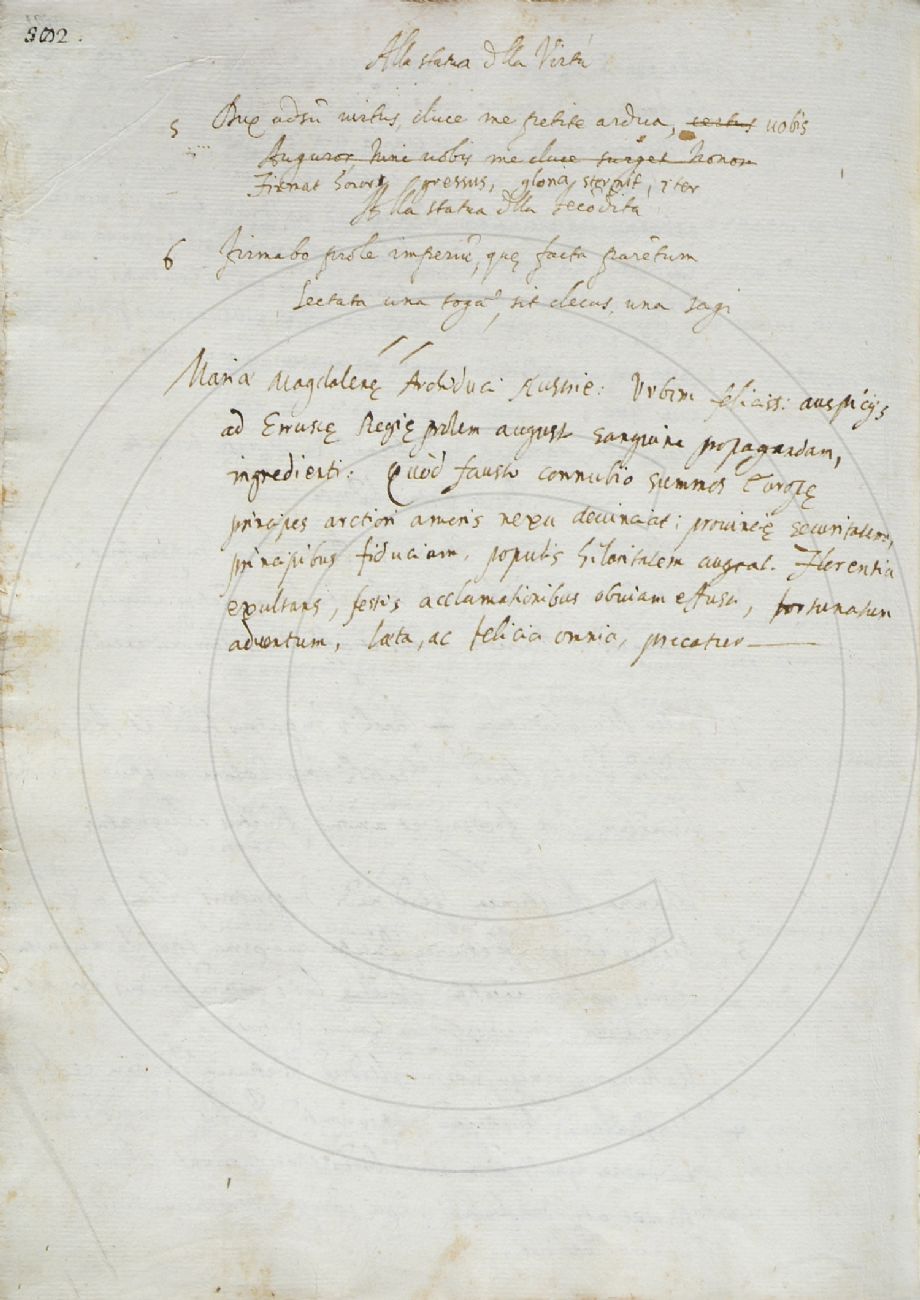 302.
Alla statua dlla Virtù
5 Dux adsũ virtus, duce me petite ardua, certus uobis
Auguror, hinc uobis me duce surget honor
Firmat honor gressus, gloria sternit, iter
Alla statua dlla fecõdità
6 Firmabo prole imperiũ, quę facta parẽtum
Sectata una togã, sit decus, una sagi
Maria Magdalenę Archiduci Austrie: Urbem feliciss: auspicijs
ad Etruscę Regię prolem august sanguine propagandam,
ingredienti. Quòd fausto connubio summos Europę
principes arctiori amoris nexu deuinciat; prouincię securitatem,
principibus fiduciam, populis hilaritatem augeat. Florentia
exultans, festis acclamationibus obuiam effusa, fortunatum
aduentum, læta, ac felicia omnia, precatur